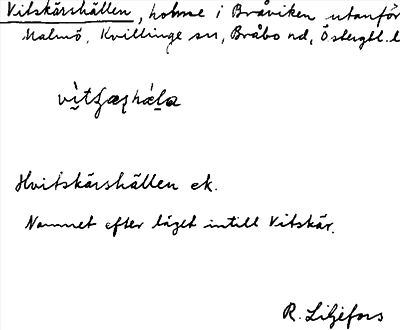 Vitskärshällen, holme i Bråviken utanför
Malmö, Kvillinge sn, Bråbo nd, Östergtl. l
Hvitskärshällen ek.
Namnet efter läget intill Vitskär.
R. Liljefors